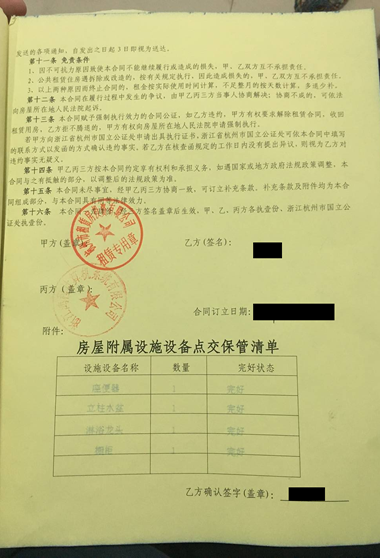 发送的各项通知,自发出之日起3日即视为送达。
第十一条 免责条件
1、因不可抗力原因致使本合同不能继续履行或造成的损失,甲、乙双方互不承担责任。
2、公共租赁住房遇拆除或改造的,按有关规定执行,因此造成损失的,甲、乙双方互不承担责任。
3、以上两种原因而终止合同的,租金按实际使用时间计算,不足整月的按天数计算,多退少补。
第十二条 本合同在履行过程中发生的争议,由甲乙丙三方当事人协商解决;协商不成的,可依法
向房屋所在地人民法院起诉。
第十三条 本合同赋予强制执行效力的合同公证,如乙方违约,甲方有权要求解除租赁合同,收回
租赁用房。乙方拒不腾退的,甲方有权向房屋所在地人民法院申请强制执行。
若甲方向浙江省杭州市国立公证处申请出具执行证书,浙江省杭州市国立公证处可依本合同中填写
的联系方式以发函的方式确认违约事实,若乙方在核查函规定的工作日内没有提出异议,则视为乙方对
违约事实无疑义。
第十四条 甲乙丙三方按本合同约定享有权利和承担义务,如遇国家或地方政府法规政策调整,本
合同与之有抵触的部分,以调整后的法规政策为准。
第十五条 本合同未尽事宜,经甲乙丙三方协商一致,可订立补充条款,补充条款及附件均为本合
同组成部分,与本合同具有同等法律效力。
第十六条 本合同 签名盖章后生效。甲、乙、丙方各执壹份、浙江杭州市国立公
证处执壹份。
甲方(盖章) 乙方:(签名)
租赁专用章
丙方(盖章):
合同订立日期:
附件:
房屋附属设施设备点交保管清单
设施设备名称 数量 完好状态
座便器 1 完好
立柱水盆 1 完好
淋浴龙头 1 完好
1 完好
乙方确认签字(盖章):